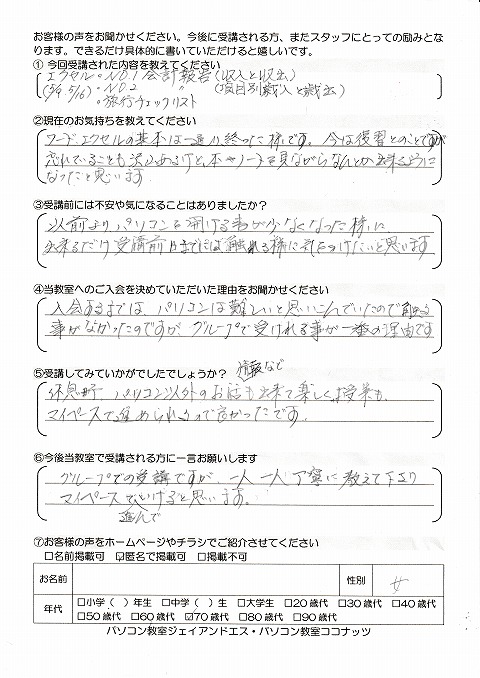 お客様の声をお聞かせください。今後に受講される方、またスタッフにとっての励みとな
ります。できるだけ具体的に書いていただけると嬉しいです。
① 今回受講された内容を教えてください
エクセル・NO.1 会計報告(収入と収出)
(5/9 5/16)・NO.2 〃 (項目別歳入と歳出)
・旅行チェックリスト
②現在のお気持ちを教えてください
ワード、エクセルの基本は一通り終った様です。今は復習とのことですが
忘れていることも沢山あるけど、本やノートを見ながらなんとか出来るように
なったと思います
③受講前には不安や気になることはありましたか?
以前よりパソコンを開ける事が少なくなった様に
出来るだけ受講前日までには触れる様に気をつけたいと思います
④当教室へのご入会を決めていただいた理由をお聞かせください
入会するまでは、パソコンは難しいと思いこんでいたので触る
事がなかったのですが、グループで受けれる事が一番の理由です
⑤受講してみていかがでしたでしょうか? 情報など
休息時、パソコン以外のお話も出来て楽しく授業も
マイペースで進められるので良かったです。
⑥今後当教室で受講される方に一言お願いします
グループでの受講ですが、一人一人丁寧に教えて下さり
マイペースでいけると思います。
進んで
⑦お客様の声をホームページやチラシでご紹介させてください
□名前掲載可 ☑匿名で掲載可 □掲載不可
お名前 性別 女
年代 □小学( )年生 □中学( )生 □大学生 □20歳代 □30歳代 □40歳代
□50歳代 □60歳代 ☑70歳代 □80歳代 □90歳代
パソコン教室ジェイアンドエス・パソコン教室ココナッツ